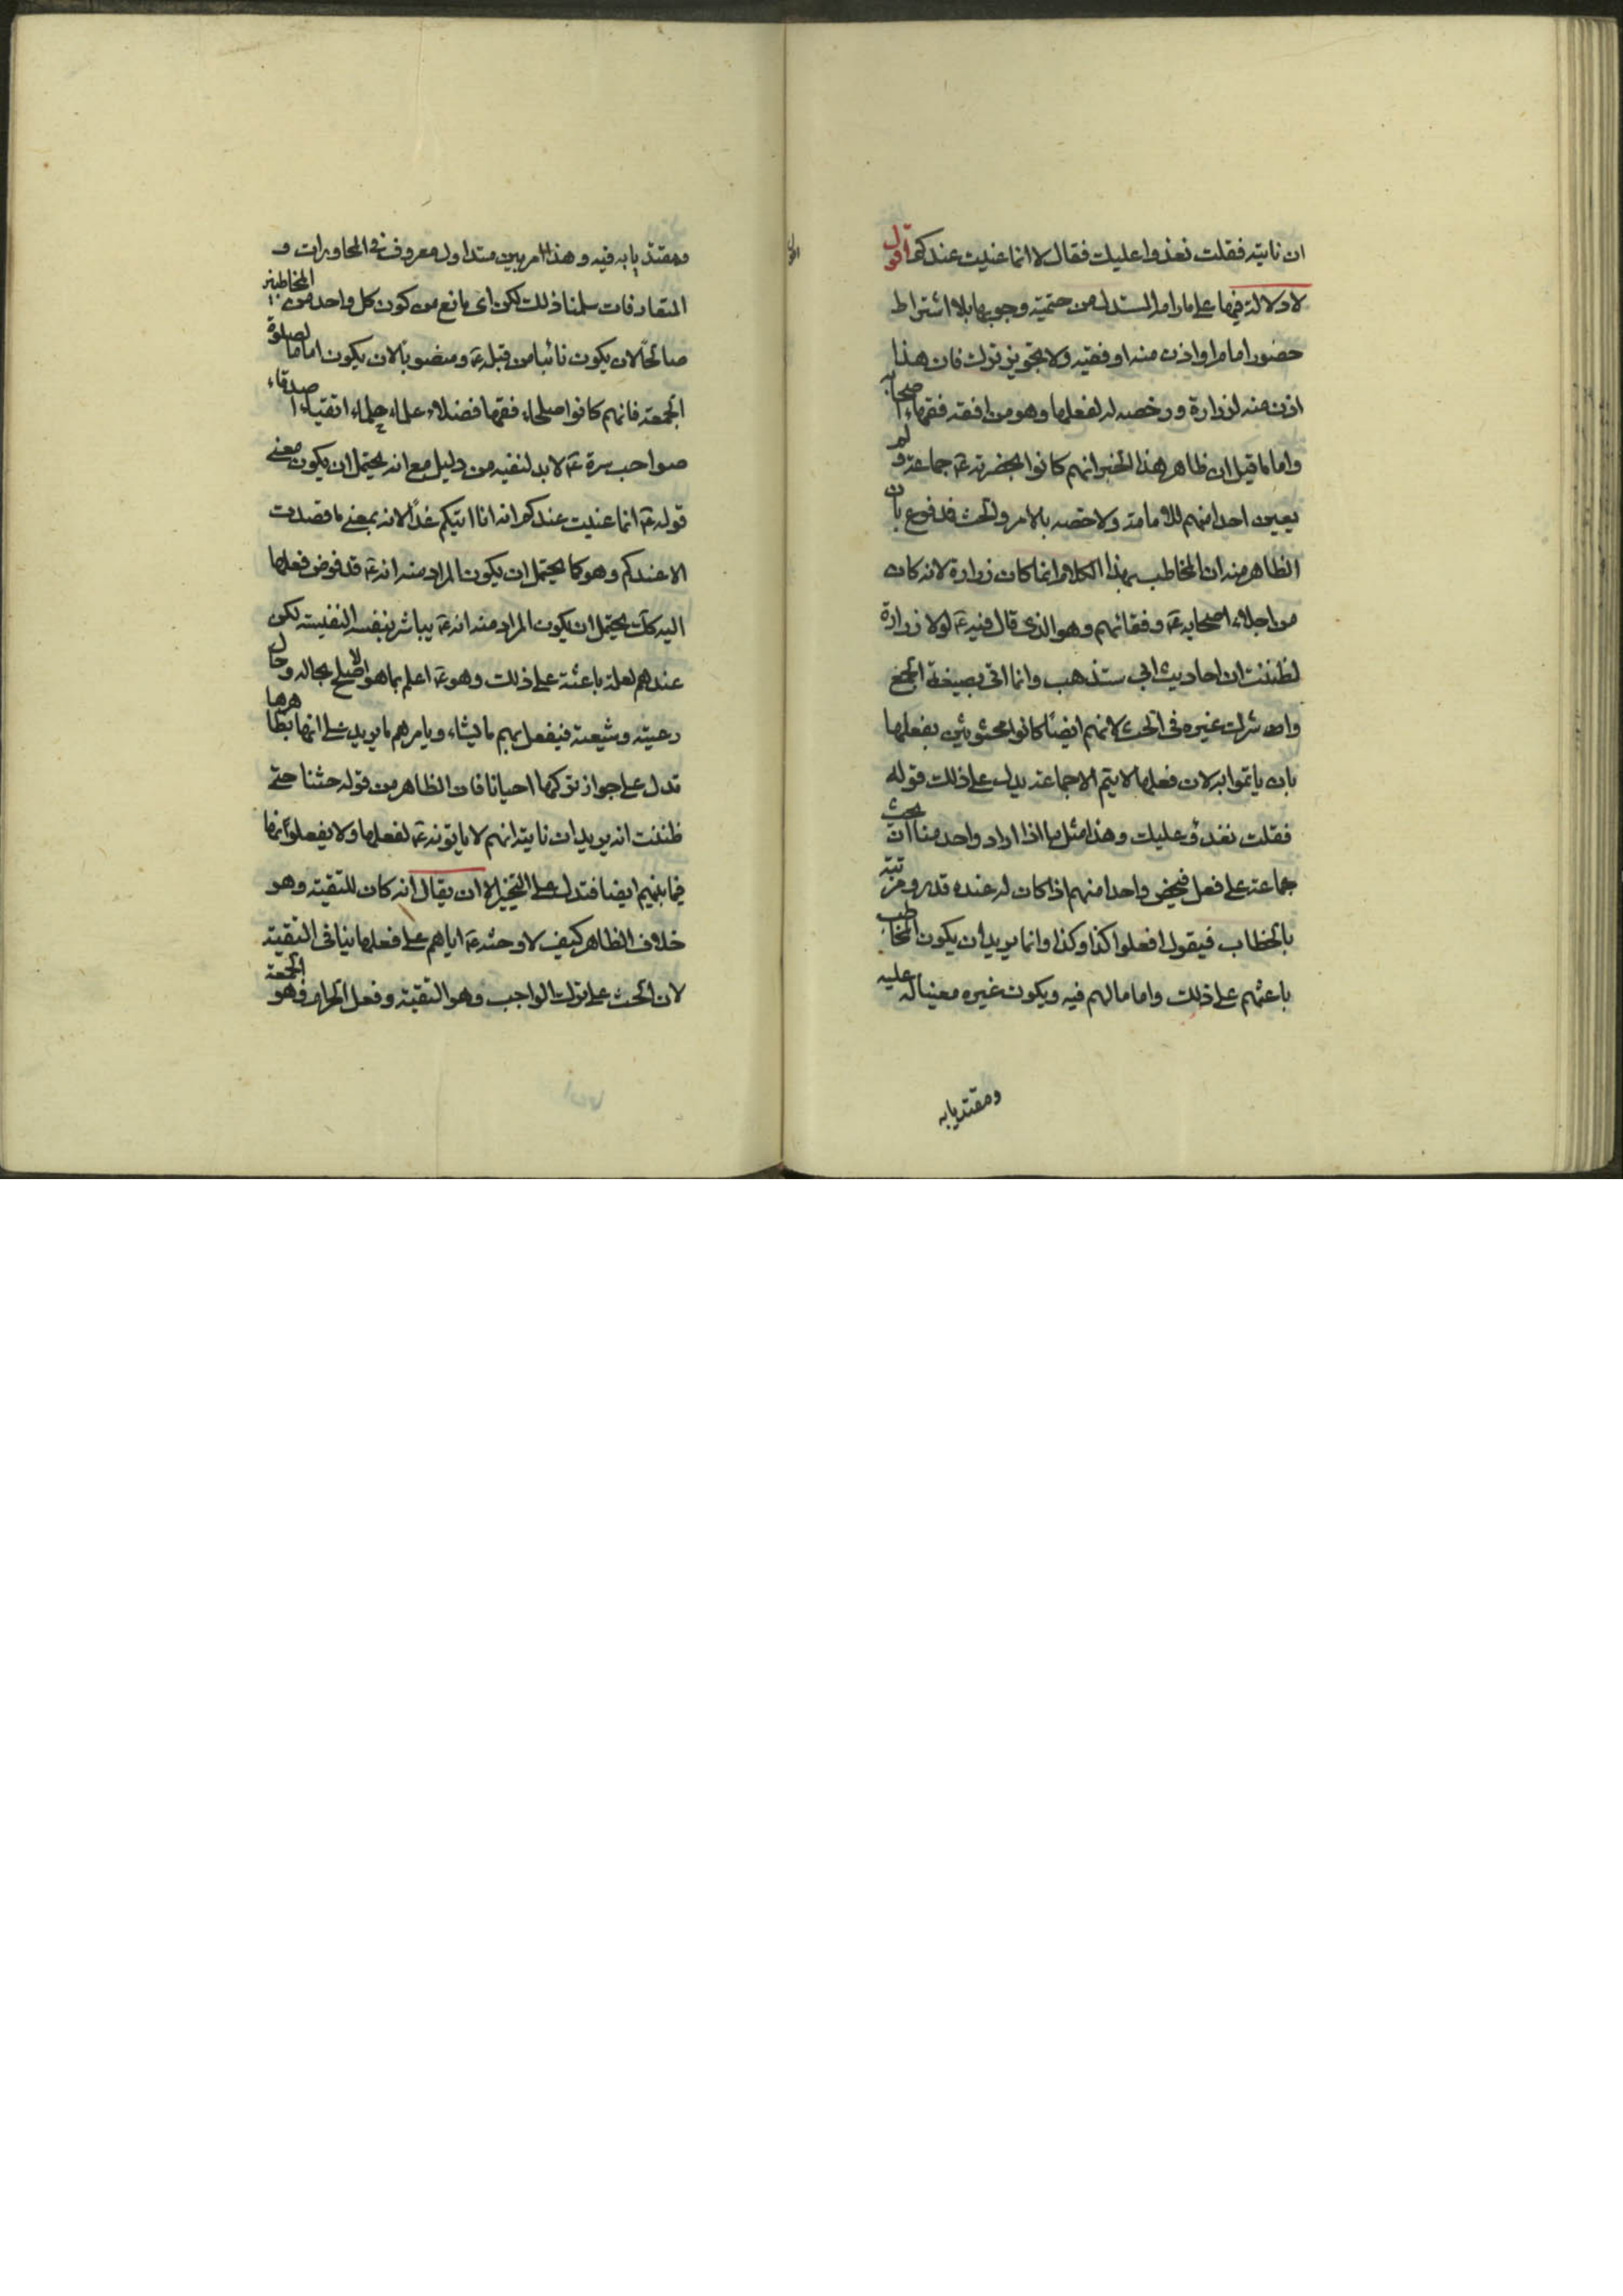 ان ناتيه فقلت نغدوا عليك فقال لا انما عنيت عندكم اقول
لا دلالة فيها على مارام المستدل من حتمية وجوبها بلا اشتراط
حضور امام او اذن منه او فقيه ولا بتجويز ترك فان هذا
اذن منه لزرارة ورخصه له لفعلها وهو من افقه فقهاء اصحابه
واما ما قيل ان ظاهر هذا الخبر انهم كانوا بحضرته ع جماعة ولم
يعين احدا منهم للامامة ولا خصه بالامر والحث فمدفوع بان
الظاهر منه ان المخاطب بهذا الكلام انما كان زرارة لانه كان
من اجلاء اصحابه ع وفقهائهم وهو الذي قال فيه ع لولا زرارة
لظننت ان احاديث ابي ستذهب وانما اتى بصيغة الجمع
واشرك غيره في الحث لانهم ايضا كانوا محثوثين بفعلها
بان ياتموا به لان فعلها لا يتم الا جماعة يدل على ذلك قوله
فقلت نغدو عليك وهذا مثل ما اذا اراد واحد منا ان يحث
جماعة على فعل فيخص واحدا منهم اذا كان له عنده قدر ومرتبة
بالخطاب فيقول افعلوا كذا وكذا وانما يريد ان يكون المخاطب
باعثهم على ذلك واماما لهم فيه ويكون غيره معينا له عليه
ومقتديا به
ومقتديا به فيه وهذا امر بين متداول معروف في المحاورات و
المتعارفات سلمنا ذلك لكن اى مانع من كون كل واحد من المخاطبين
صالحا لان يكون نائبا من قبله ع ومنصوبا لان يكون اماما لصلوة
الجمعة فانهم كانوا صلحاء فقهاء فضلاء علماء حلماء اتقياء اصدقاء
صواحب سرة ع لابد لنفيه من دليل مع انه يحتمل ان يكون معنى
قوله ع انما عنيت عندكم انه انا اتيكم غدا لانه بمعنى ما قصدت
الا عندكم وهو كما يحتمل ان يكون المراد منه انه ع قد فوض فعلها
اليه كك يحتمل ان يكون المراد منه انه ع يباشر بنفسه النفيسة لكن
عندهم لعلة باعثة على ذلك وهو ع اعلم بما هو الاصلح بحاله وحال
رعيته وشيعته فيفعل بهم ما يشاء ويامرهم ما يريد على انها بظاهرها
تدل على جواز تركها احيانا فان الظاهر من قوله حثنا حتى
ظننت انه يريد ان ناتيه انهم لا ياتونه ع لفعلها ولا يفعلونها
فيما بينهم ايضا فتدل على التخيير الا ان يقال انه كان للتقية وهو
خلاف الظاهر كيف لا وحثه ع اياهم على فعلها ينافي التقية
لان الحث على ترك الواجب وهو التقية وفعل الحرام وهو الجمعة